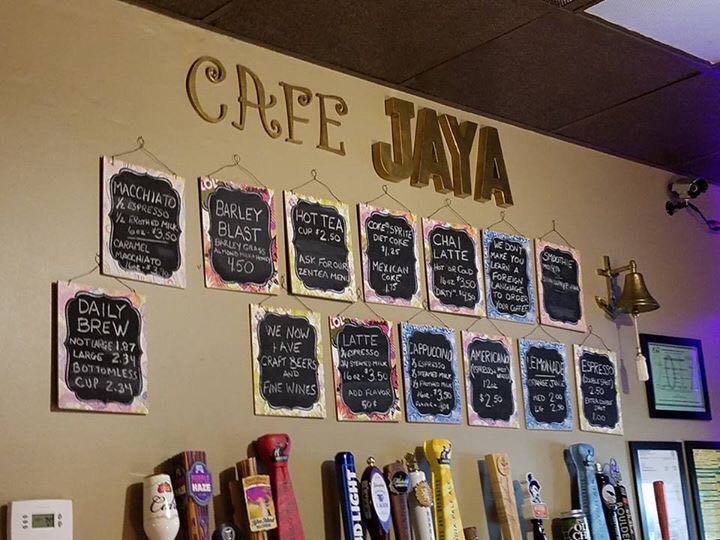 CAFE JAYA
MACCHIATO
½ ESPRESSO
½ FROTHED MILK
6oz - $3.50
CARAMEL
MACCHIATO
6oz - $3.50
BARLEY
BLAST
BARLEY GRASS
ALMOND MILK HONEY
4.50
HOT TEA
CUP $2.50
ASK FOR OUR
ZENTEA MENU
COKE SPRITE
DIET COKE
$1.25
MEXICAN
COKE
CHAI
LATTE
HOT OR COLD
16oz $3.50
DIRTY $4.50
WE DON'T
MAKE YOU
LEARN A
FOREIGN
LANGUAGE
TO ORDER
YOUR COFFEE
SMOOTHIE
DAILY
BREW
NOT LARGE 1.87
LARGE 2.34
BOTTOMLESS
CUP 2.34
WE NOW
HAVE
CRAFT BEERS
AND
FINE WINES
LATTE
⅓ ESPRESSO
⅔ STEAMED MILK
16oz $3.50
ADD FLAVOR
50¢
CAPPUCCINO
⅓ ESPRESSO
⅓ STEAMED MILK
⅓ FROTHED MILK
AMERICANO
12oz
$2.50
LEMONADE
ORANGE JUICE
MED 2.00
LG 2.50
ESPRESSO
DOUBLE SHOT
2.50
EXTRA DOUBLE
SHOT
1.00
PURPLE
HAZE
BUD LIGHT